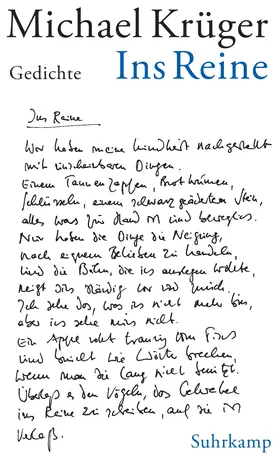 Michael Krüger
Gedichte Ins Reine
Ins Reine
Wir haben meine Kindheit nachgestellt
mit unscheinbaren Dingen.
Einem Tannenzapfen, Brotkrumen,
Schlüsseln, einem schwarz geäderten Stein,
alles was zur Hand ist und beweglich.
Nun haben die Dinge die Neigung,
nach eignem Belieben zu handeln,
und die Bühne, die ich
neigt sich ständig vor und zurück.
Ich sehe das, was ich nicht mehr bin,
aber ich sehe mich nicht.
Ein Apfel rollt traurig vom Tisch
und bricht wie Wörter brechen,
wenn man sie lang nicht benutzt.
Überlass es den Vögeln, das Gekrakel
ins Reine zu schreiben, auf die ist
Verlaß.
Suhrkamp